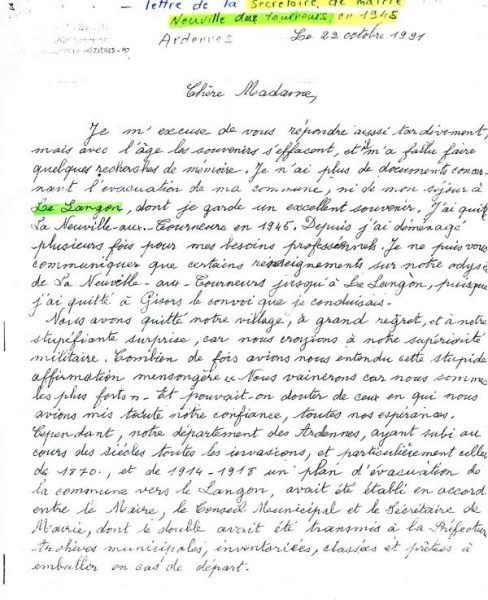 lettre de la Secrétaire de mairie
Neuville aux Tourneurs, en 1945
Ardennes
Le 22 octobre 1991
Chère Madame,
Je m'excuse de vous répondre aussi tardivement,
mais avec l'âge les souvenirs s'effacent, et il m'a fallu faire
quelques recherches de mémoire. Je n'ai plus de documents concer-
nant l'évacuation de ma commune, ni de mon séjour à
Le Langon, dont je garde un excellent souvenir. J'ai quitté
La Neuville-aux-Tourneurs en 1945. Depuis j'ai déménagé
plusieurs fois pour mes besoins professionnels. Je ne puis vous
communiquer que certains renseignements sur notre odyss
de La Neuville-aux-Tourneurs jusqu'à Le Langon, puisque
j'ai quitté à Gisors le convoi que je conduisais.
Nous avons quitté notre village, à grand regret, et à notre
stupéfiante surprise, car nous croyions à notre supériorité
militaire. Combien de fois avions nous entendu cette stupide
affirmation mensongère « Nous vainerons car nous sommes
les plus forts ». Et pouvait-on douter de ceux en qui nous
avions mis toute notre confiance, toutes nos espérances.
Cependant, notre département des Ardennes, ayant subi au
cours des siècles toutes les invasions, et particulièrement celles
de 1870, et de 1914-1918 un plan d'évacuation de
la commune vers le Langon, avait été établi en accord
entre le Maire, le Conseil Municipal et le Secrétaire de
Mairie, dont le double avait été transmis à la Préfecture
Archives municipales, inventoriées, classées et prêtes à
emballer en cas de départ.